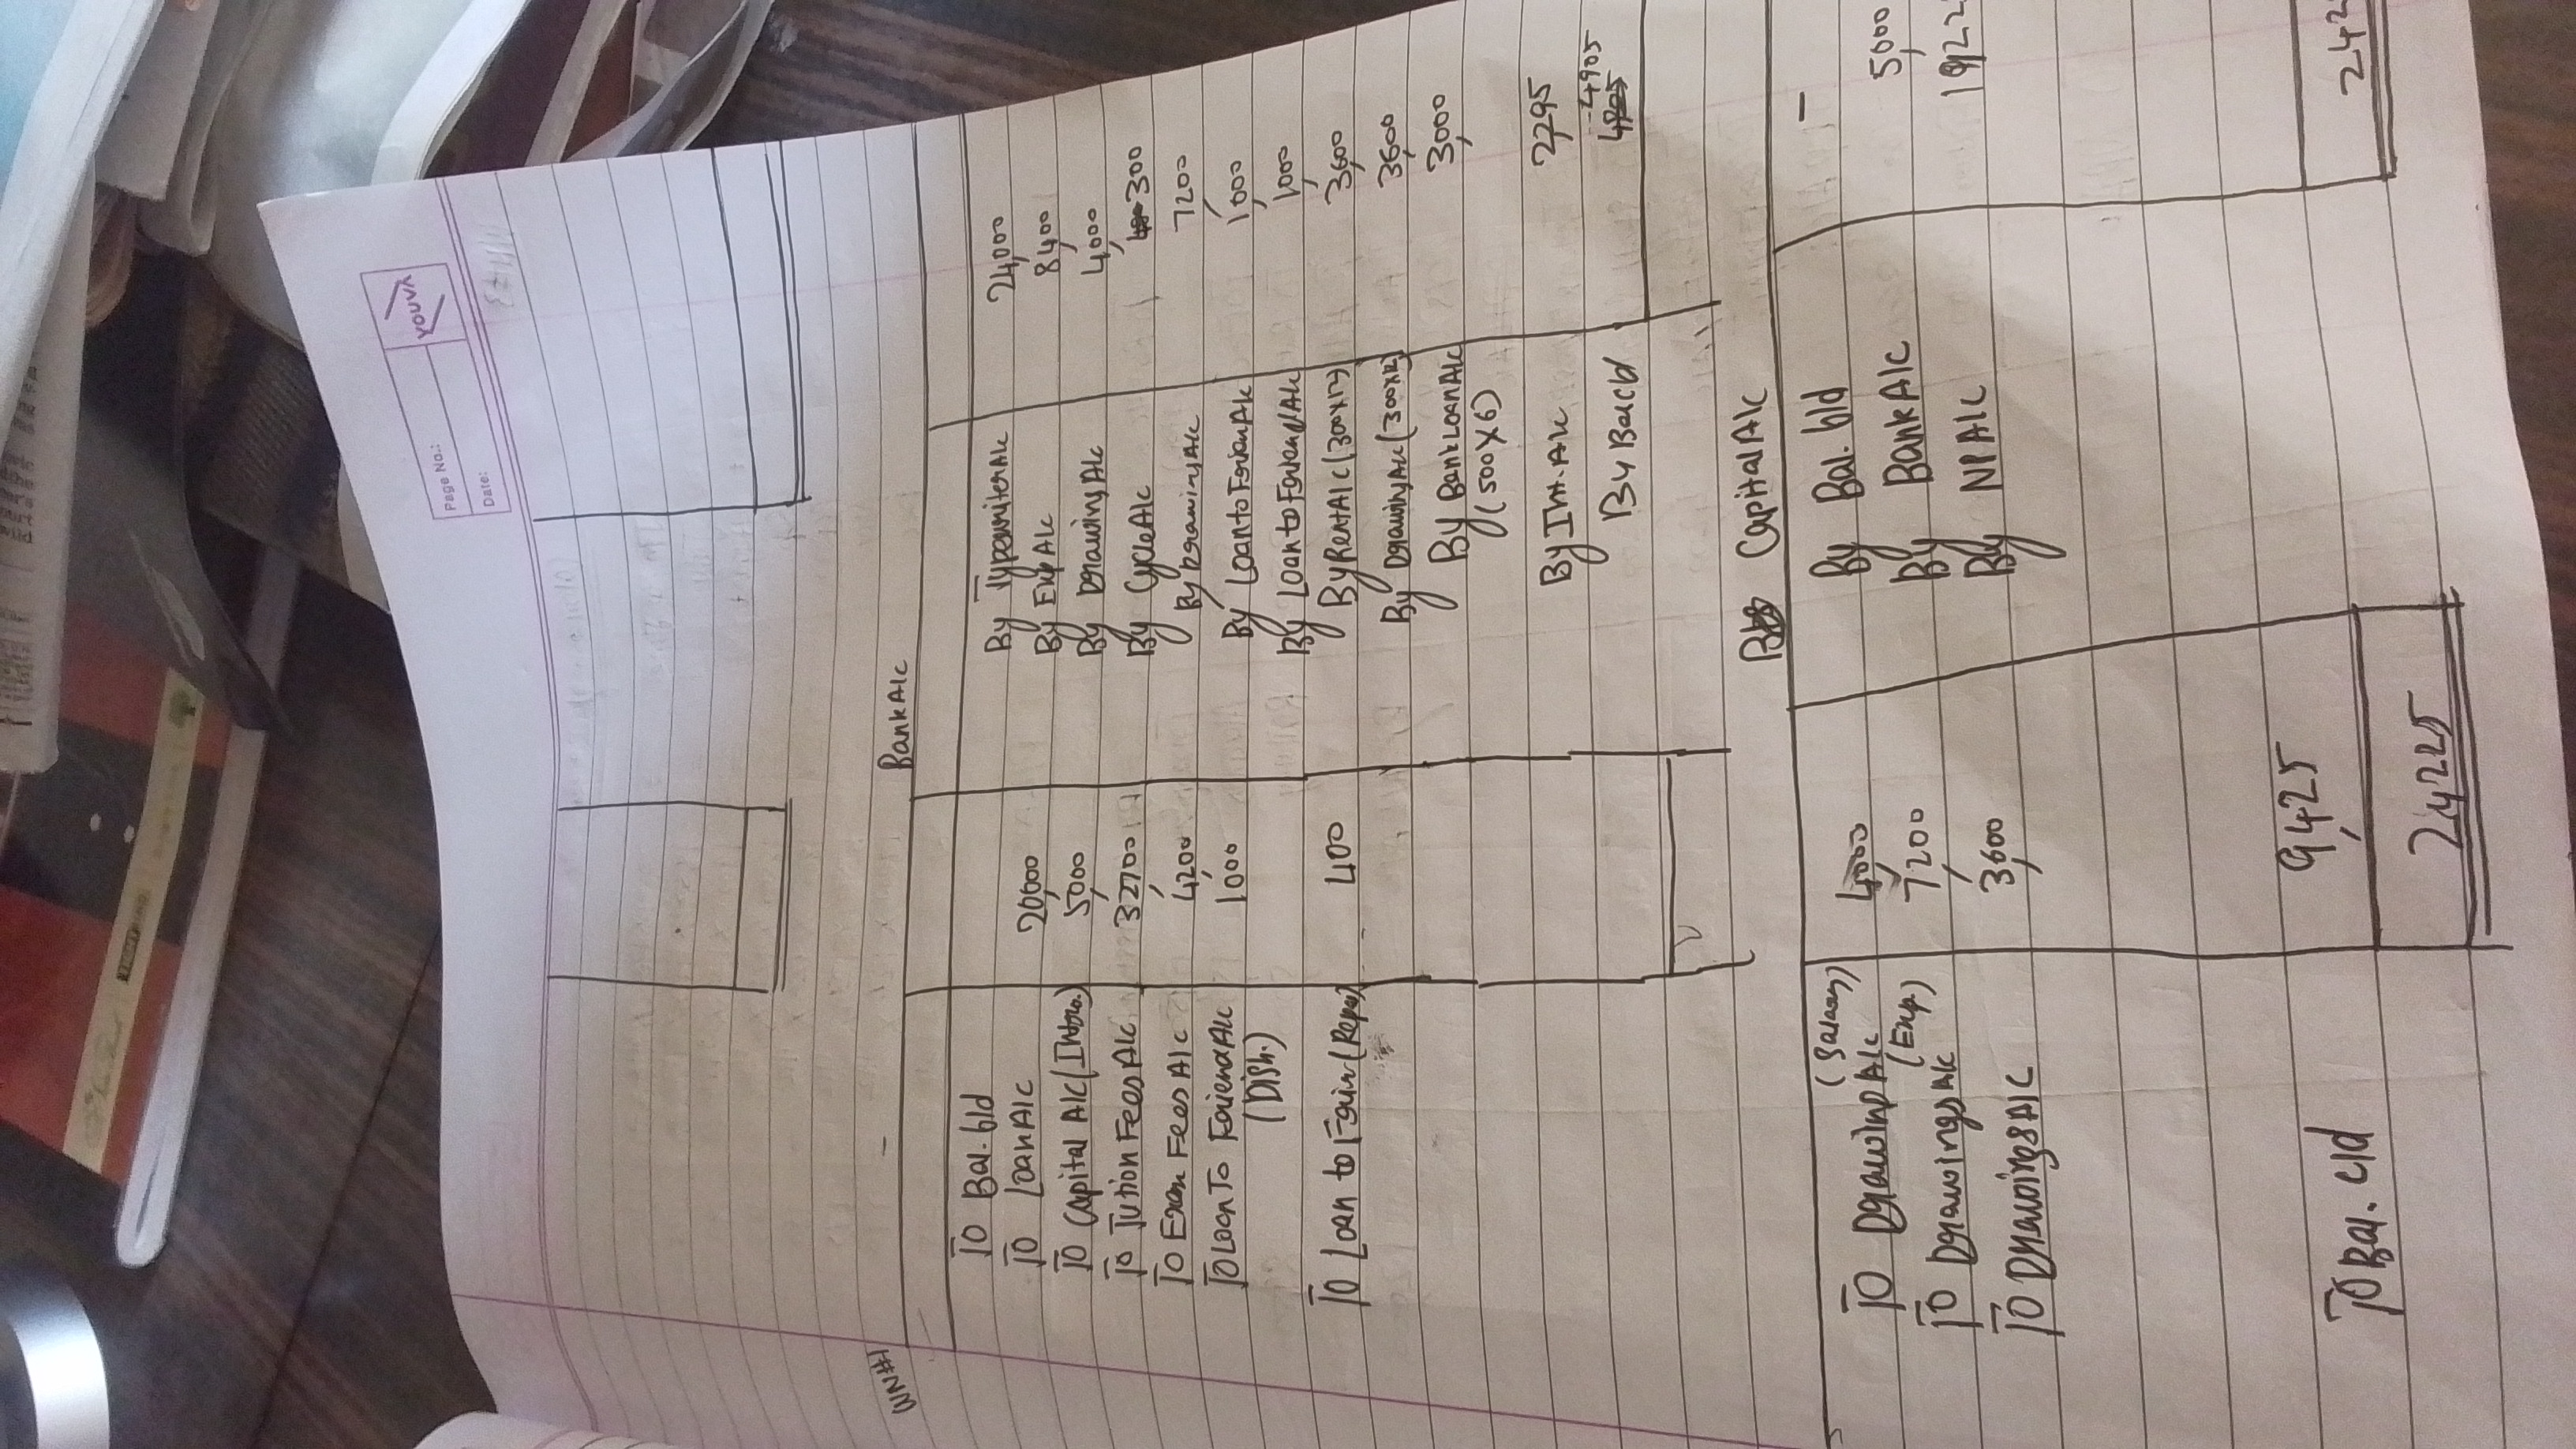 YOUVA
Page No.:
Date:
WN#1
Bank A/c
To Bal. b/d
To Loan A/c 20000 By Typewriter A/c 24,000
To Capital A/c (Intro.) 5,000 By Exp A/c 8,400
To Tution Fees A/c 32700 By Drawing A/c 4,000
To Exam Fees A/c 4,200 By Cycle A/c 300
To Loan To Friend A/c 1000 By Drawing A/c 7200
(Dish.) By Loan to Friend A/c 1,000
By Loan to Friend A/c 1,000
To Loan to 400 By Rent A/c (300x12) 3,600
By Drawing A/c (300x12) 3,600
By Bank Loan A/c 3,000
(500 x 6)
By Int. A/c 2,295
By Bal c/d 4905
Capital A/c
To Drawing A/c (Salary) 4,000 By Bal. b/d -
To Drawings A/c (Exp.) 7,200 By Bank A/c 5,000
To Drawings A/c 3,600 By NP A/c
To Bal. c/d 9,425
24225